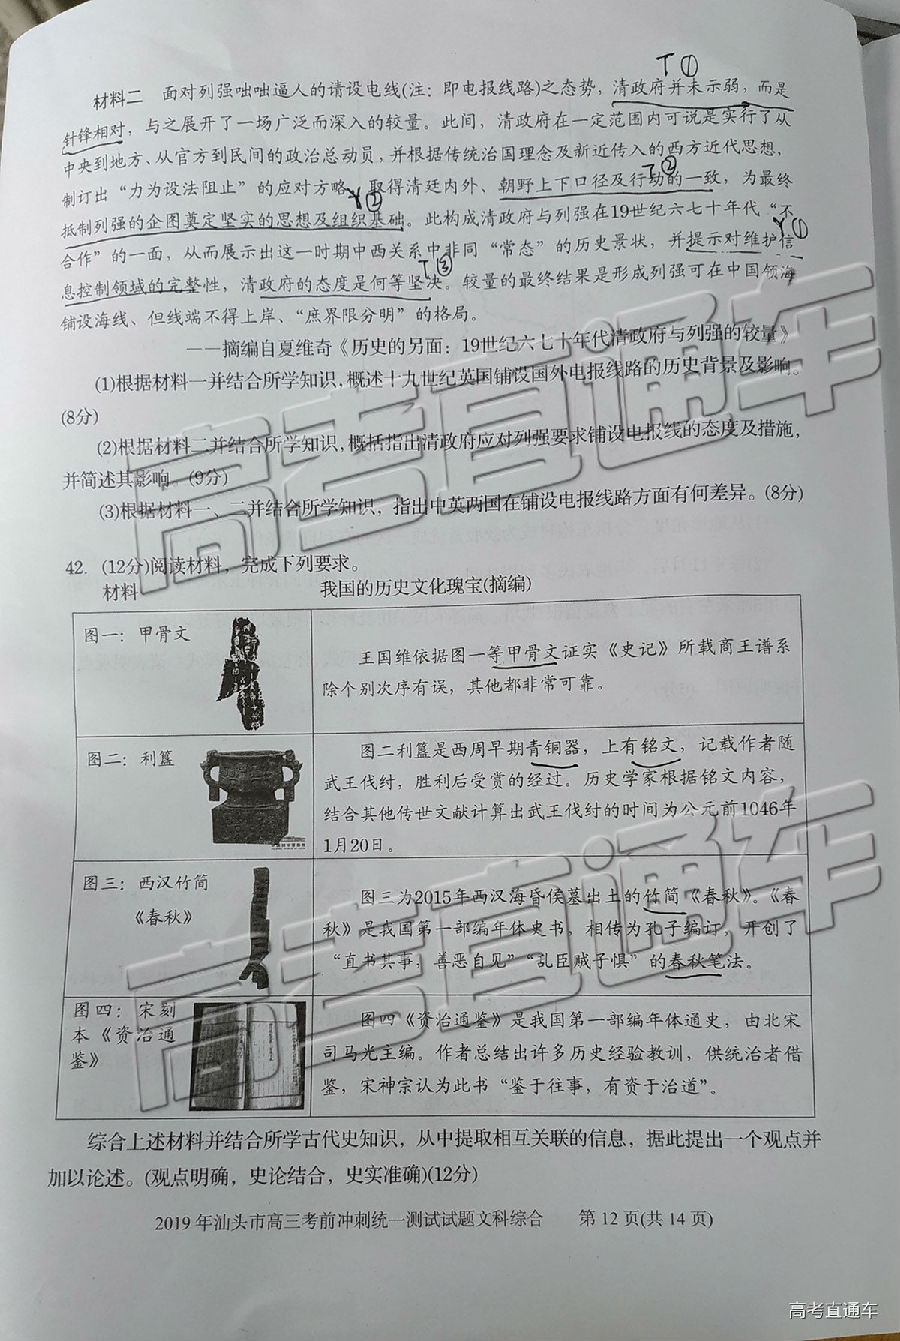 T①
材料二 面对列强咄咄逼人的请设电线(注：即电报线路)之态势，清政府并未示弱，而是
针锋相对，与之展开了一场广泛而深入的较量。此间，清政府在一定范围内可说是实行了从
中央到地方、从官方到民间的政治总动员，并根据传统治国理念及新近传入的西方近代思想，
T②
制订出“力为设法阻止”的应对方略，取得清廷内外、朝野上下口径及行动的一致，为最终
Y②
抵制列强的企图奠定坚实的思想及组织基础。此构成清政府与列强在19世纪六七十年代“不
Y①
合作”的一面，从而展示出这一时期中西关系中非同“常态”的历史景状，并提示对维护信
T③
息控制领域的完整性，清政府的态度是何等坚决。较量的最终结果是形成列强可在中国领海
铺设海线、但线端不得上岸、“庶界限分明”的格局。
——摘编自夏维奇《历史的另面：19世纪六七十年代清政府与列强的较量》
(1)根据材料一并结合所学知识，概述十九世纪英国铺设国外电报线路的历史背景及影响。
(8分)
(2)根据材料二并结合所学知识，概括指出清政府应对列强要求铺设电报线的态度及措施，
并简述其影响。(9分)
(3)根据材料一、二并结合所学知识，指出中英两国在铺设电报线路方面有何差异。(8分)
42. (12分)阅读材料，完成下列要求。
材料 我国的历史文化瑰宝(摘编)
图一：甲骨文
王国维依据图一等甲骨文证实《史记》所载商王谱系
除个别次序有误，其他都非常可靠。
图二：利簋
图二利簋是西周早期青铜器，上有铭文，记载作者随
武王伐纣，胜利后受赏的经过。历史学家根据铭文内容，
结合其他传世文献计算出武王伐纣的时间为公元前1046年
1月20日。
图三：西汉竹简
《春秋》
图三为2015年西汉海昏侯墓出土的竹简《春秋》。《春
秋》是我国第一部编年体史书，相传为孔子编订，开创了
“直书其事，善恶自见”“乱臣贼子惧”的春秋笔法。
图四：宋刻
本《资治通
鉴》
图四《资治通鉴》是我国第一部编年体通史，由北宋
司马光主编。作者总结出许多历史经验教训，供统治者借
鉴，宋神宗认为此书“鉴于往事，有资于治道”。
综合上述材料并结合所学古代史知识，从中提取相互关联的信息，据此提出一个观点并
加以论述。(观点明确，史论结合，史实准确)(12分)
2019年汕头市高三考前冲刺统一测试试题文科综合 第12页(共14页)
高考直通车
高考直通车
高考直通车